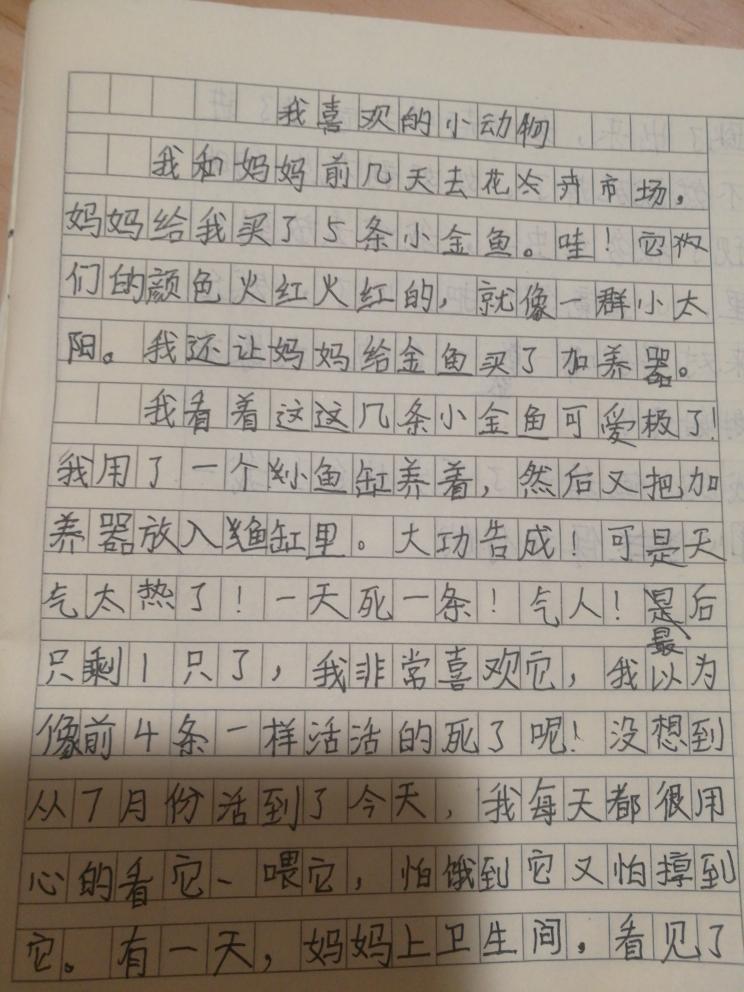 我喜欢的小动物
我和妈妈前几天去花卉市场，
妈妈给我买了5条小金鱼。哇！它
们的颜色火红火红的，就像一群小太
阳。我还让妈妈给金鱼买了加养器。
我看着这这几条小金鱼可爱极了！
我用了一个小鱼缸养着，然后又把加
养器放入鱼缸里。大功告成！可是天
气太热了！一天死一条！气人！最后
只剩1只了，我非常喜欢它，我以为
像前4条一样活活的死了呢！没想到
从7月份活到了今天，我每天都很用
心的看它、喂它，怕饿到它又怕撑到
它。有一天，妈妈上卫生间，看见了